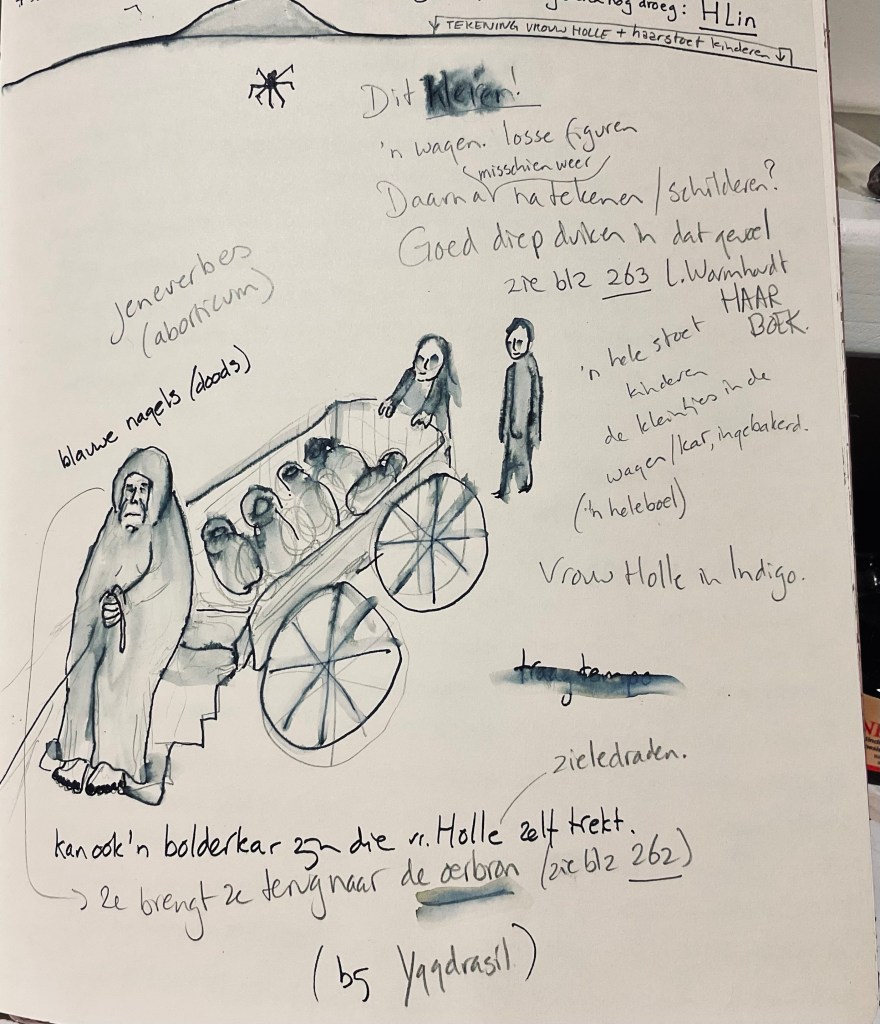 droeg: HLin
↓ TEKENING VROUW HOLLE + haar stoet kinderen ↓
Dit kleien!
'n wagen. losse figuren
misschien weer
Daarna natekenen / schilderen?
Goed diep duiken in dat gevoel
zie blz 263 L. Warmhardt
HAAR
BOEK.
Jeneverbes
(aborticum)
blauwe nagels (doods)
'n hele stoet
kinderen
de kleintjes in de
wagen/kar, ingebakerd.
('n heleboel)
Vrouw Holle in Indigo.
traag tempo
zieledraden.
kan ook 'n bolderkar zijn die vr. Holle zelf trekt.
→ ze brengt ze terug naar de oerbron (zie blz 262)
(bij Yggdrasil)